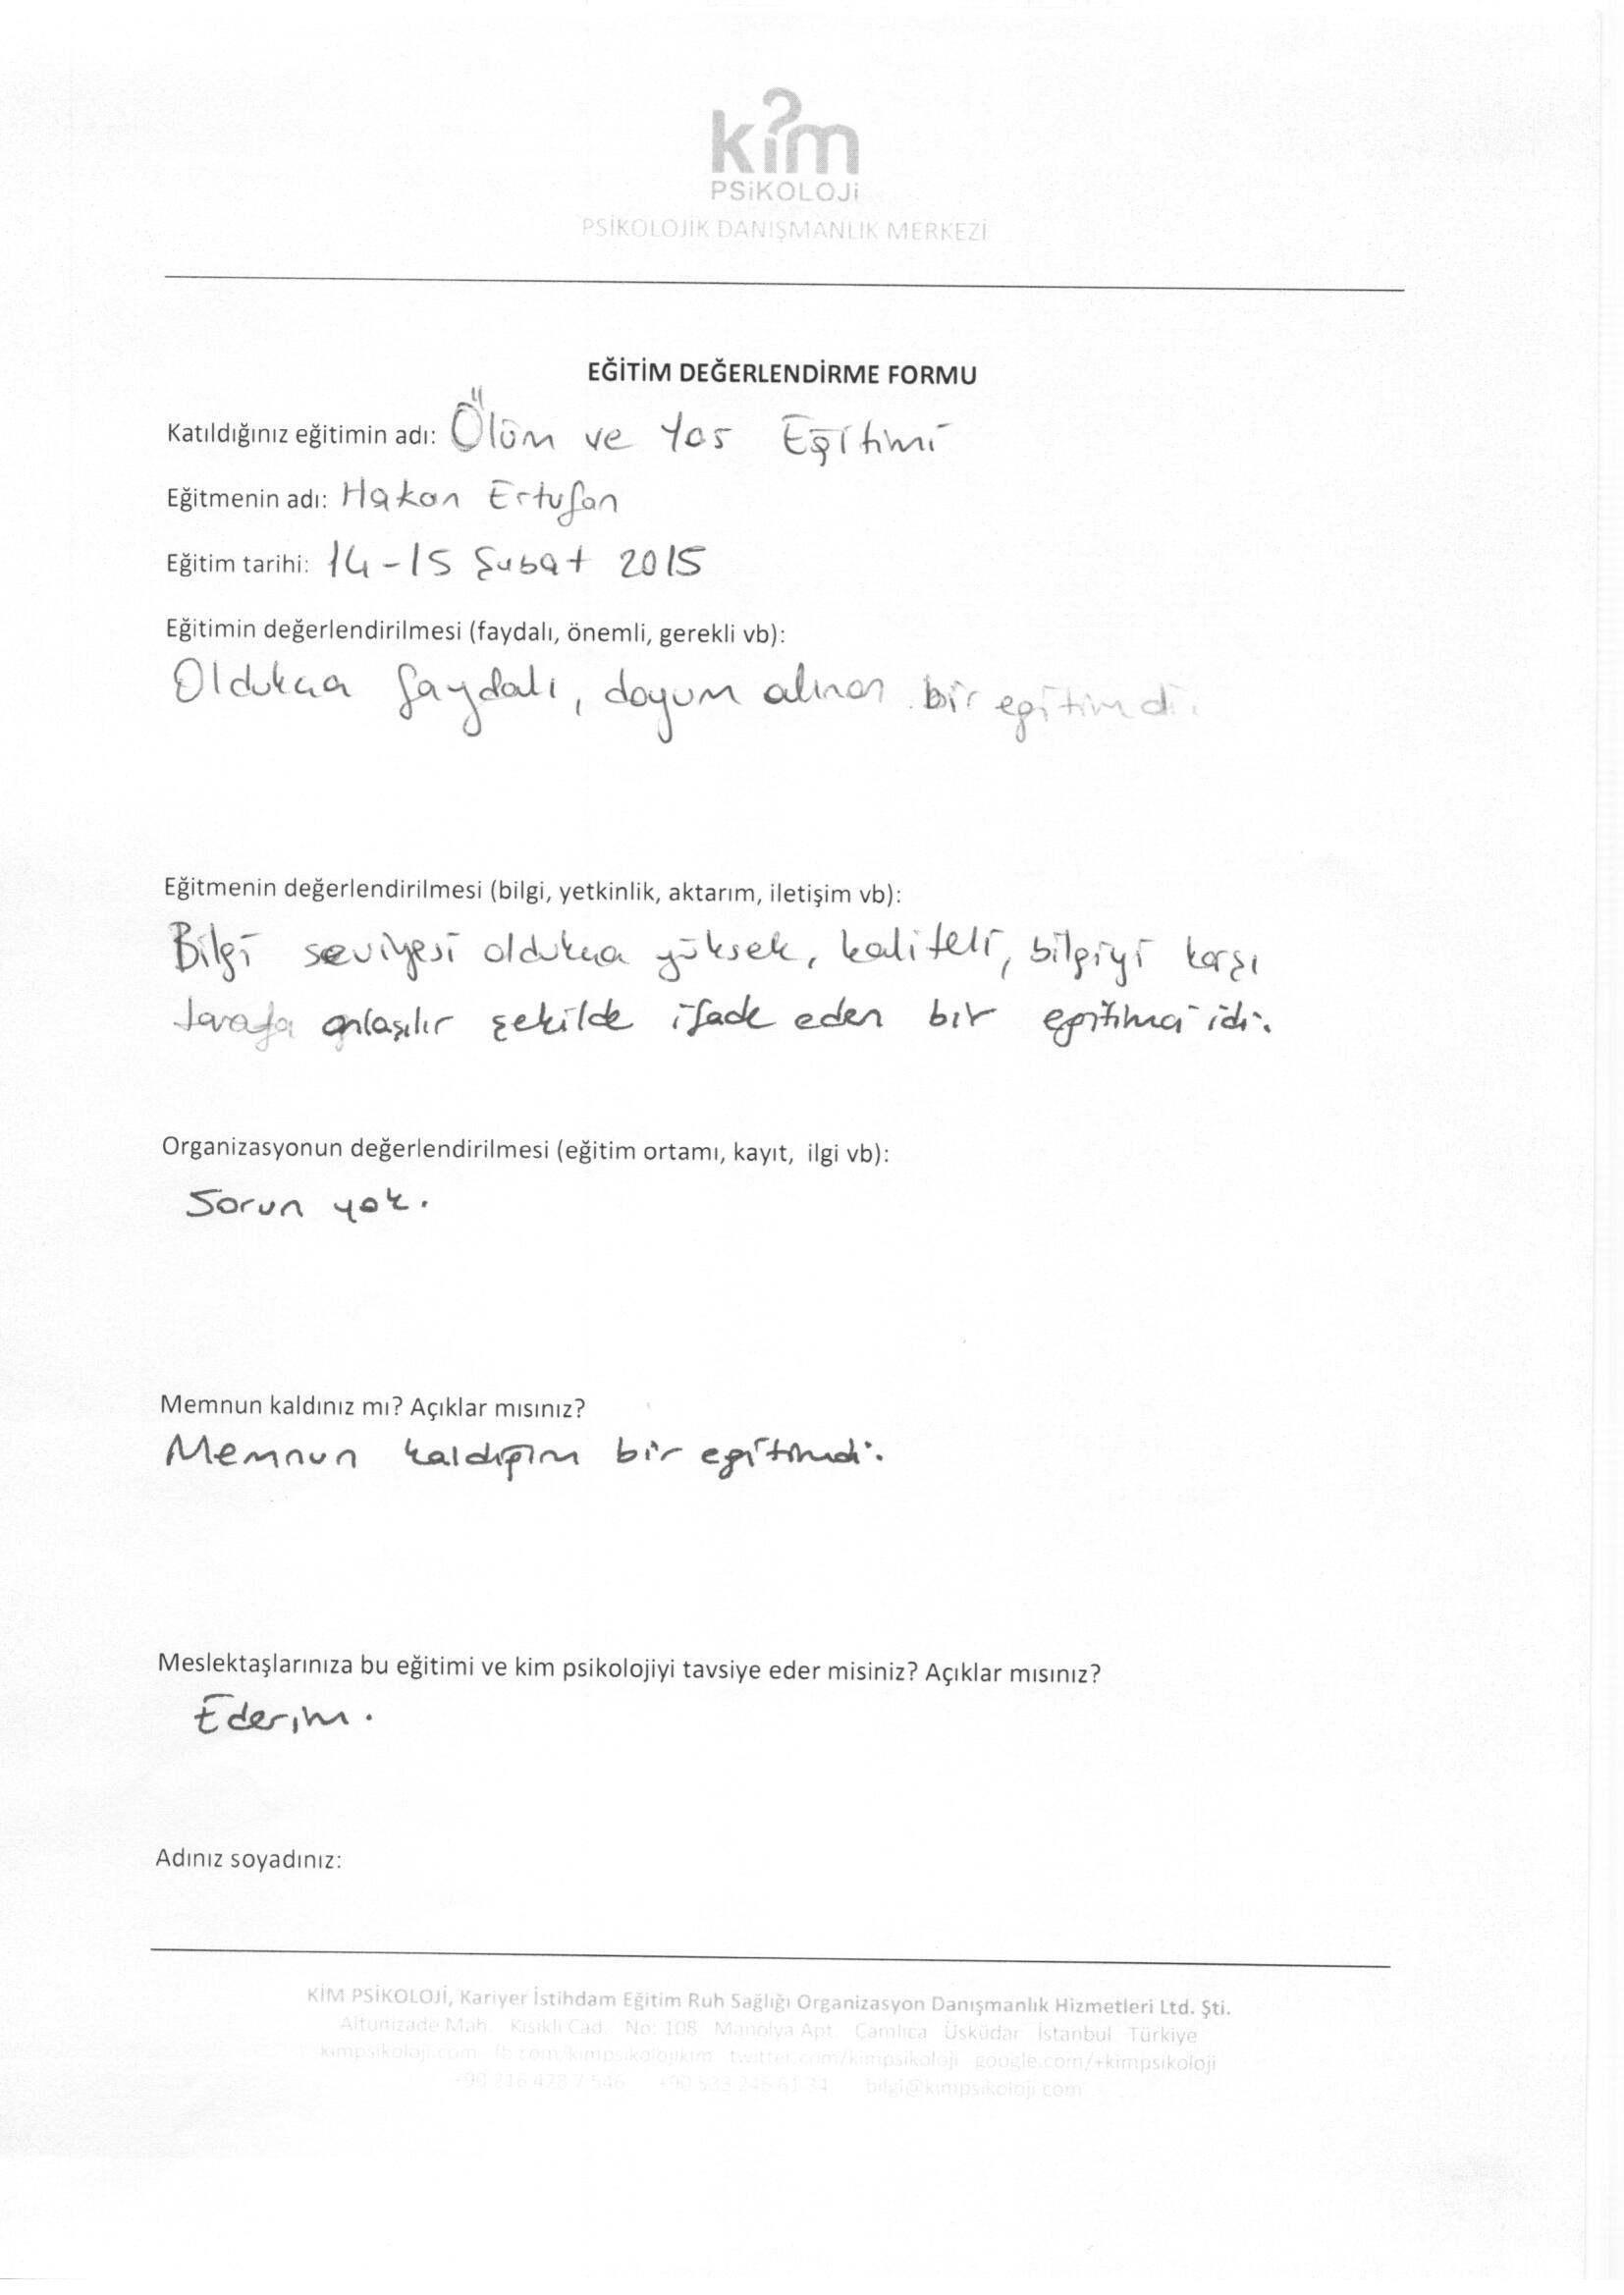 kim
PSİKOLOJİ
PSİKOLOJİK DANIŞMANLIK MERKEZİ
EĞİTİM DEĞERLENDİRME FORMU
Katıldığınız eğitimin adı: Ölüm ve Yas Eğitimi
Eğitmenin adı: Hakan Ertufan
Eğitim tarihi: 14-15 Şubat 2015
Eğitimin değerlendirilmesi (faydalı, önemli, gerekli vb):
Oldukca faydalı, doyum alınan bir eğitimdi.
Eğitmenin değerlendirilmesi (bilgi, yetkinlik, aktarım, iletişim vb):
Bilgi seviyesi oldukca yüksek, kaliteli, bilgiyi karşı
tarafa anlaşılır şekilde ifade eden bir eğitimci idi.
Organizasyonun değerlendirilmesi (eğitim ortamı, kayıt, ilgi vb):
Sorun yok.
Memnun kaldınız mı? Açıklar mısınız?
Memnun kaldığım bir eğitimdi.
Meslektaşlarınıza bu eğitimi ve kim psikolojiyi tavsiye eder misiniz? Açıklar mısınız?
Ederim.
Adınız soyadınız:
KİM PSİKOLOJİ, Kariyer İstihdam Eğitim Ruh Sağlığı Organizasyon Danışmanlık Hizmetleri Ltd. Şti.
Altunizade Mah. Kısıklı Cad. No: 108 Manolya Apt. Çamlıca Üsküdar İstanbul Türkiye
kimpsikoloji.com fb.com/kimpsikolojikim twitter.com/kimpsikoloji google.com/+kimpsikoloji
bilgi@kimpsikoloji.com